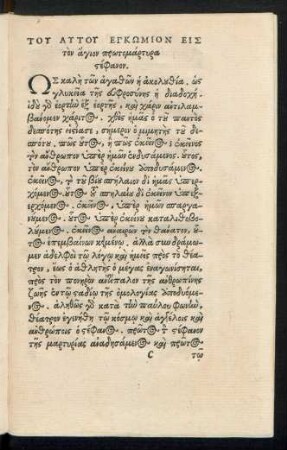 ΤΟΥ ΑΥΤΟΥ ΕΓΚΩΜΙΟΝ ΕΙΣ
τὸν ἅγιον πρωτομάρτυρα
στέφανον.
ΩΣ καλὴ τῶν ἀγαθῶν ἡ ἀκολουθία, ὡς
γλυκεῖα τῆς εὐφροσύνης ἡ διαδοχή.
ἰδοὺ γὸ ἑορτὴν ἐξ ἑορτῆς, καὶ χάριν ἀντιλαμ
βάνομεν χάριτος. χθὲς ἡμᾶς ὁ τοῦ παντὸς
δεσπότης εἱστίασε, σήμερον ὁ μιμητὴς τοῦ δε
σπότου. πῶς οὗτος, ἢ πῶς ἐκεῖνος; ἐκεῖνος
τὸν ἄνθρωπον ὑπὲρ ἡμῶν ἐνδυσάμενος. οὗτος,
τὸν ἄνθρωπον ὑπὲρ ἐκείνου ὑποδυσάμενος.
ἐκεῖνος, τὸ τοῦ βίου σπήλαιον δι' ἡμᾶς ὑπερ
χόμενος. οὗτος τοῦ σπηλαίου δι' ἐκεῖνον ὑπεξερ
χόμενος. ἐκεῖνος, ὑπὲρ ἡμῶν σπαργα
νούμενος. οὗτος ὑπὲρ ἐκείνου καταλιθοβο
λούμενος. ἐκεῖνος ἀναιρῶν τὸν θάνατον. οὗ
τος ἐπεμβαίνων κειμένῳ. ἀλλὰ συνδράμωμεν
ἀδελφοὶ τῷ λόγῳ καὶ ἡμεῖς πρὸς τὸ θέα
τρον, ἐν ᾧ ὁ ἀθλητὴς ὁ μέγας ἐναγωνίσηται,
πρὸς τὸν πονηρὸν ἀντίπαλον τῆς ἀνθρωπίνης
ζωῆς ἐν τῷ σταδίῳ τῆς ὁμολογίας ὑποδυόμε
νος. ἀληθῶς γὸ κατὰ τὴν παύλου φωνὴν,
θέατρον ἐγενήθη τῷ κόσμῳ καὶ ἀγγέλοις καὶ
ἀνθρώποις ὁ στέφανος. πρῶτος τὸν στέφανον
τῆς μαρτυρίας ἀναδησάμενος καὶ πρῶτος
C τῷ